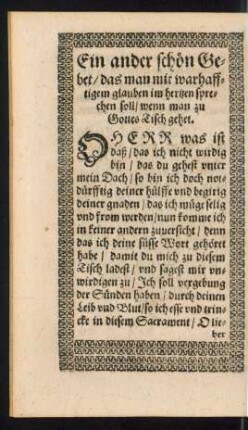 Ein ander schön Ge-
bet / das man mit warhaff-
tigem glauben im hertzen spre-
chen soll / wenn man zu
Gottes Tisch gehet.
O HERR was ist
daß / das ich nicht wirdig
bin / das du gehst vnter
mein Dach / so bin ich doch not-
dürfftig deiner hülffe vnd begirig
deiner gnaden / das ich müge selig
vnd from werden / nun komme ich
in keiner andern zuuersicht / denn
das ich deine süsse Wort gehöret
habe / damit du mich zu diesem
Tisch ladest / vnd sagest mir vn-
wirdigen zu / Ich soll vergebung
der Sünden haben / durch deinen
Leib vnd Blut / so ich esse vnd trin-
cke in diesem Sacrament / O lie-
ber